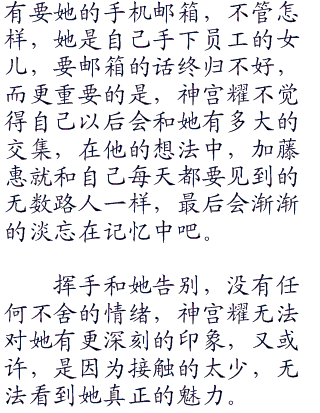 有要她的手机邮箱，不管怎
样，她是自己手下员工的女
儿，要邮箱的话终归不好，
而更重要的是，神宫耀不觉
得自己以后会和她有多大的
交集，在他的想法中，加藤
惠就和自己每天都要见到的
无数路人一样，最后会渐渐
的淡忘在记忆中吧。
挥手和她告别，没有任
何不舍的情绪，神宫耀无法
对她有更深刻的印象，又或
许，是因为接触的太少，无
法看到她真正的魅力。